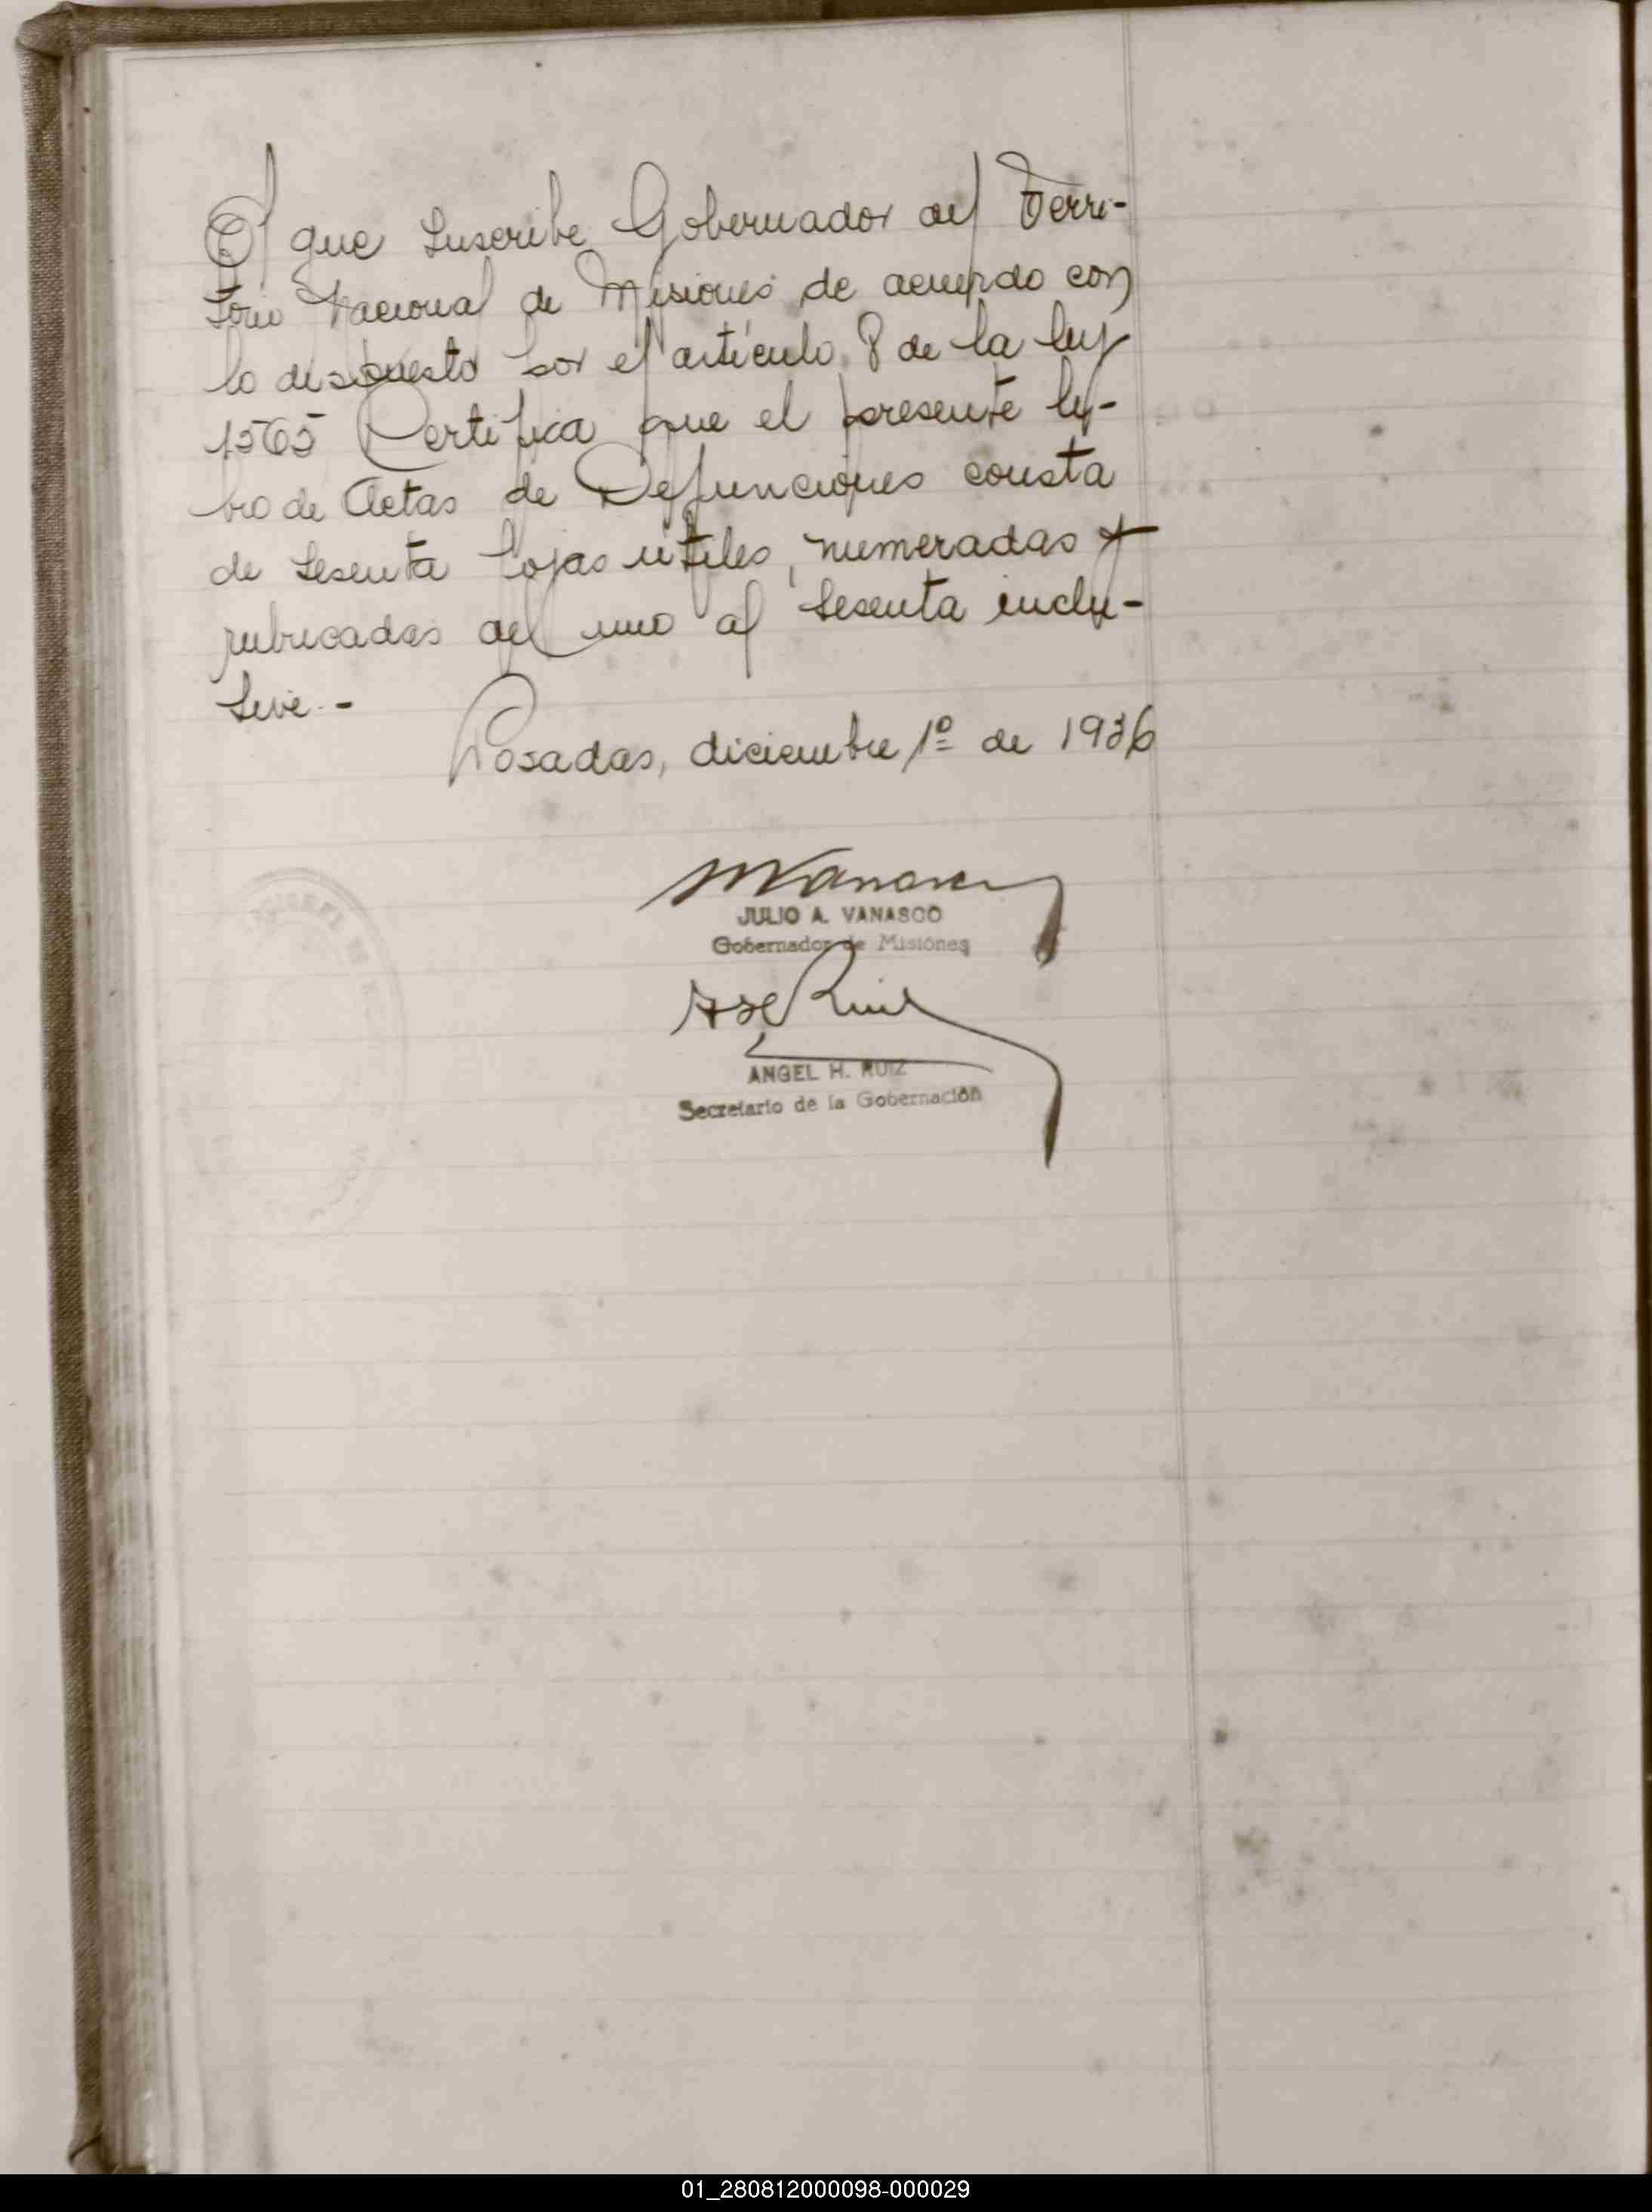 El que suscribe Gobernador del Terri-
torio Nacional de Misiones de acuerdo con
lo dispuesto por el artículo 8 de la ley
1565 Certifica que el presente li-
bro de Actas de Defunciones consta
de sesenta fojas útiles, numeradas y
rubricadas del uno al sesenta inclu-
sive.-
Posadas, diciembre 1º de 1936
JULIO A. VANASCO
Gobernador de Misiones
ANGEL H. RUIZ
Secretario de la Gobernación
01_280812000098-000029